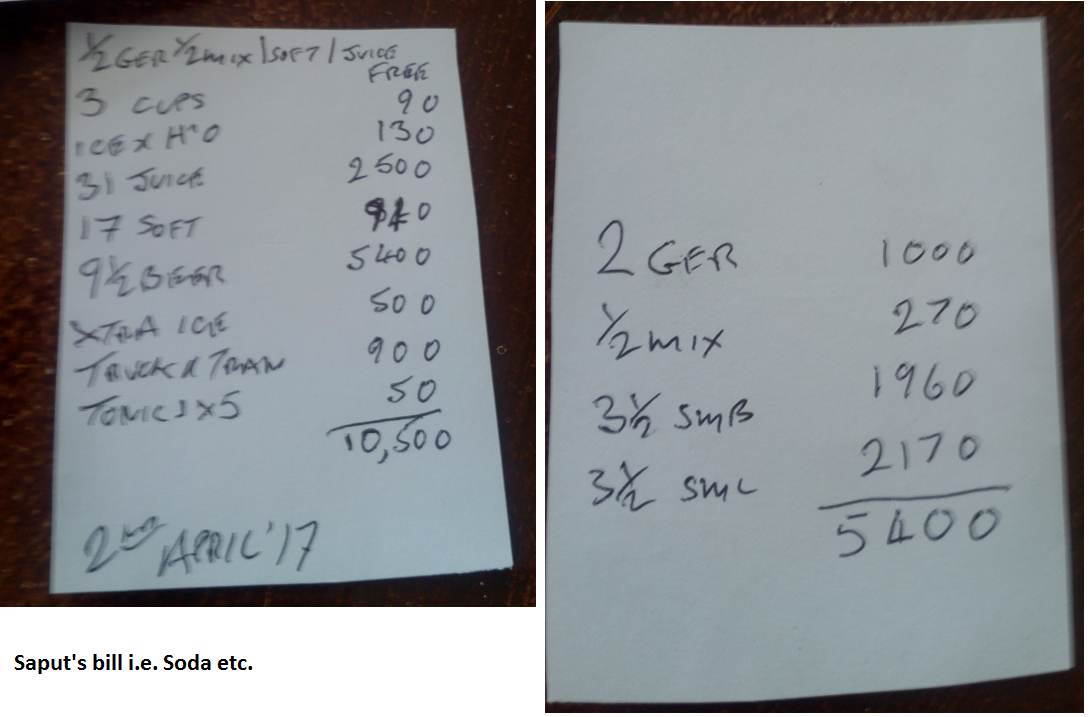 ½ GER ½ MIX 1 SOFT 1 JUICE
FREE
3 CUPS 90
ICE X H²O 130
31 JUICE 2500
17 SOFT
9½ BEER 5400
XTRA ICE 500
TRUCK & TRAN 900
TONIC 1 X 5 50
10,500
2ND APRIL '17
2 GER 1000
½ MIX 270
3½ SMB 1960
3½ SML 2170
5400
Saput's bill i.e. Soda etc.